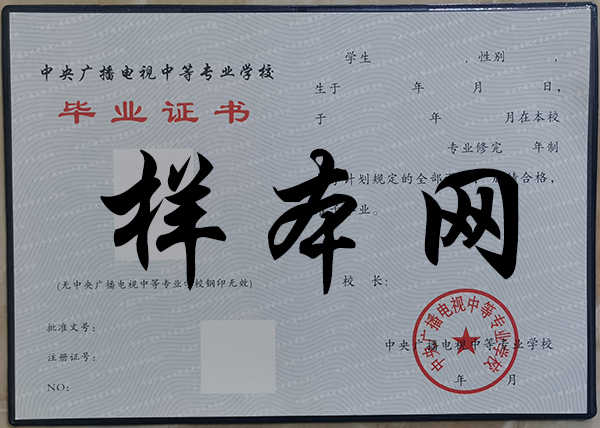 中央广播电视中等专业学校
毕业证书
(无中央广播电视中等专业学校钢印无效)
批准文号：
注册证号：
NO：
学生 ，性别 ，
生于 年 月 日，
于 年 月在本校
专业修完 年制
计划规定的全部 合格，
业。
校 长：
中央广播电视中等专业学校
年 月
中央广播电视中等专业学校
样本网